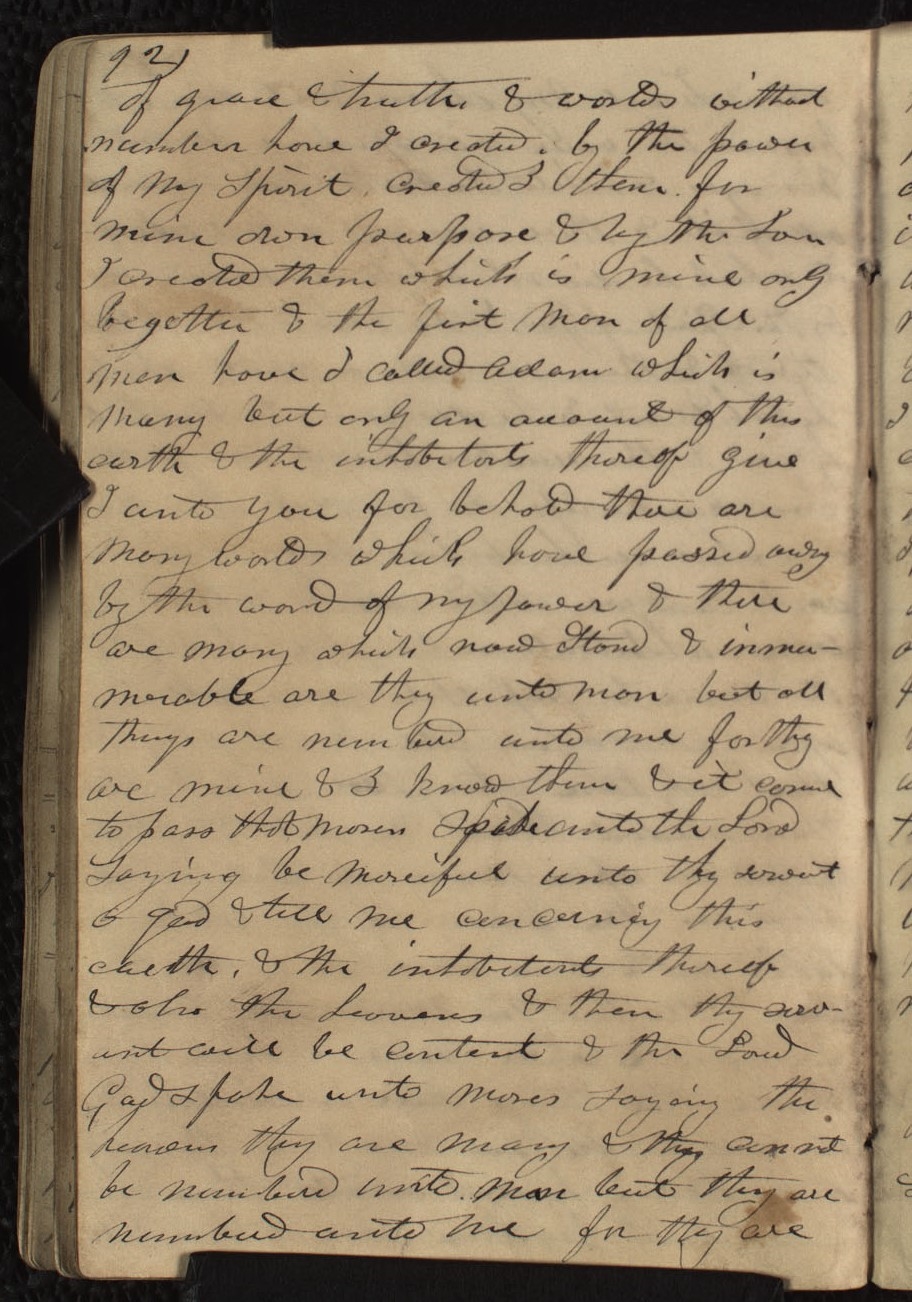 92)
of grace & truth & worlds without
number have I created. by the power
of my Spirit. created I them. for
mine own purpose & by the Son
I created them which is mine only
begotten & the first man of all
men have I called Adam which is
many but only an account of this
earth & the inhabitants thereof give
I unto you for behold there are
many worlds which have passed away
by the word of my power & there
are many which now Stand & innu-
merable are they unto man but all
things are numbered unto me for they
are mine & I know them & it came
to pass that moses Spake unto the Lord
Saying be merciful unto thy servant
O god & tell me concerning this
earth, & the inhabitants thereof
& also the heavens & then thy serv-
ant will be content & the Lord
God spake unto moses saying the
heavens they are many & they cannot
be numbered unto man but they are
numbered unto me for they are